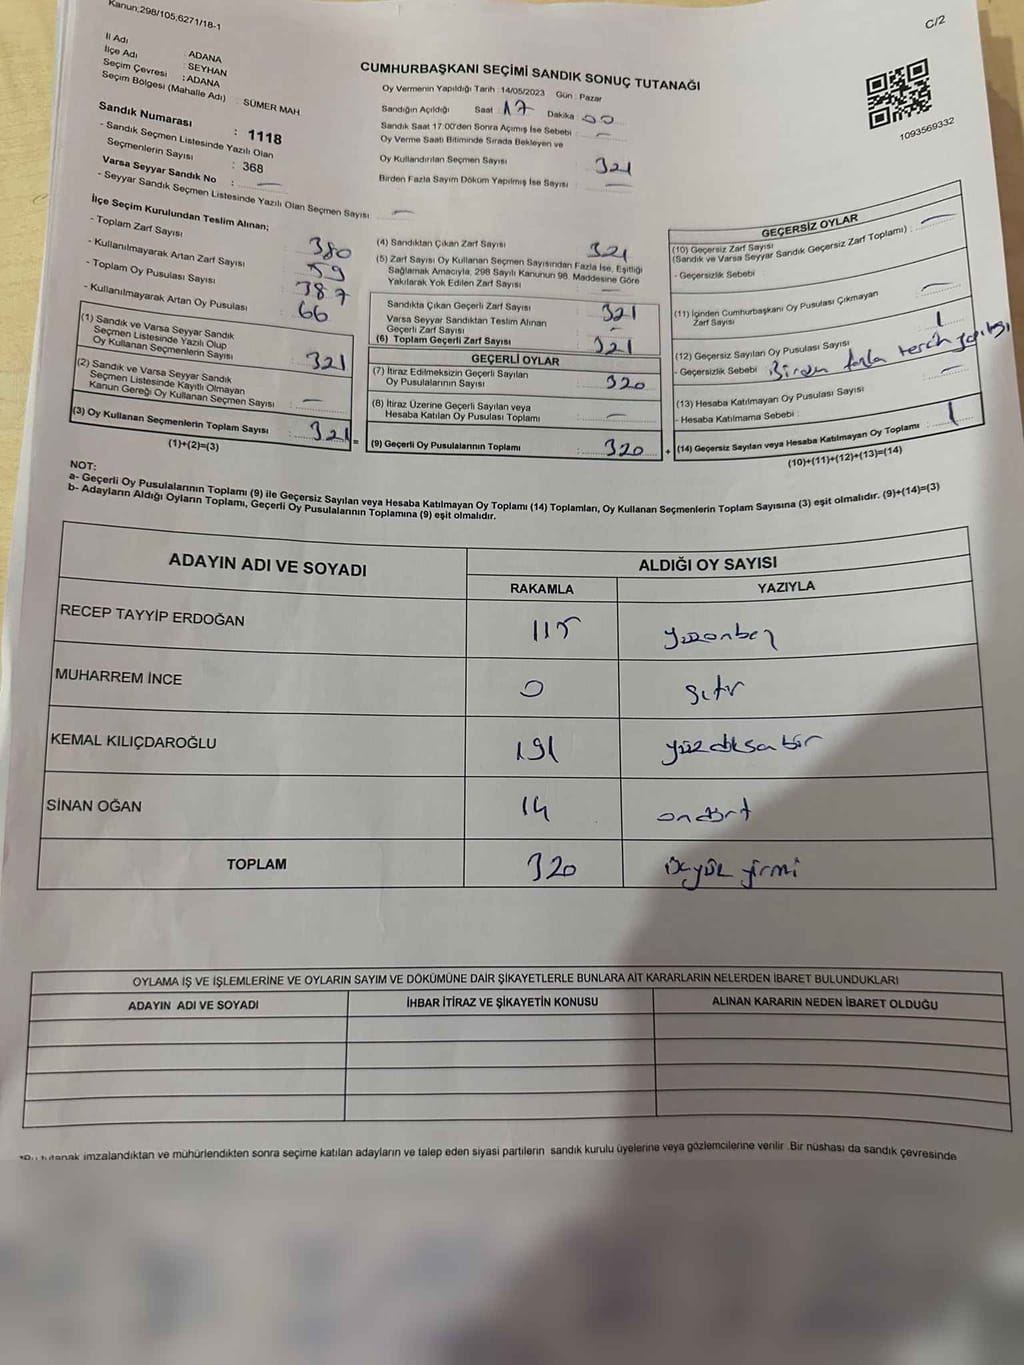 Kanun:298/105;6271/18-1
C/2
İl Adı : ADANA
İlçe Adı : SEYHAN
Seçim Çevresi : ADANA
Seçim Bölgesi (Mahalle Adı) : SÜMER MAH
Sandık Numarası : 1118
- Sandık Seçmen Listesinde Yazılı Olan
Seçmenlerin Sayısı : 368
Varsa Seyyar Sandık No : —
- Seyyar Sandık Seçmen Listesinde Yazılı Olan Seçmen Sayısı —
CUMHURBAŞKANI SEÇİMİ SANDIK SONUÇ TUTANAĞI
Oy Vermenin Yapıldığı Tarih : 14/05/2023 Gün : Pazar
Sandığın Açıldığı Saat : 17 Dakika : 00
Sandık Saat 17:00'den Sonra Açımış İse Sebebi : —
Oy Verme Saati Bitiminde Sırada Bekleyen ve
Oy Kullandırılan Seçmen Sayısı 321
Birden Fazla Sayım Döküm Yapılmış İse Sayısı : —
1093569332
İlçe Seçim Kurulundan Teslim Alınan;
- Toplam Zarf Sayısı 380
- Kullanılmayarak Artan Zarf Sayısı 59
- Toplam Oy Pusulası Sayısı 387
- Kullanılmayarak Artan Oy Pusulası : 66
(1) Sandık ve Varsa Seyyar Sandık
Seçmen Listesinde Yazılı Olup
Oy Kullanan Seçmenlerin Sayısı : 321
(2) Sandık ve Varsa Seyyar Sandık
Seçmen Listesinde Kayıtlı Olmayan
Kanun Gereği Oy Kullanan Seçmen Sayısı : —
(3) Oy Kullanan Seçmenlerin Toplam Sayısı : 321 =
(1)+(2)=(3)
(4) Sandıktan Çıkan Zarf Sayısı 321
(5) Zarf Sayısı Oy Kullanan Seçmen Sayısından Fazla İse, Eşitliği
Sağlamak Amacıyla, 298 Sayılı Kanunun 98. Maddesine Göre
Yakılarak Yok Edilen Zarf Sayısı : —
Sandıkta Çıkan Geçerli Zarf Sayısı : 321
Varsa Seyyar Sandıktan Teslim Alınan
Geçerli Zarf Sayısı —
(6) Toplam Geçerli Zarf Sayısı : 321
GEÇERLİ OYLAR
(7) İtiraz Edilmeksizin Geçerli Sayılan
Oy Pusulalarının Sayısı : 320
(8) İtiraz Üzerine Geçerli Sayılan veya
Hesaba Katılan Oy Pusulası Toplamı : —
(9) Geçerli Oy Pusulalarının Toplamı : 320 +
GEÇERSİZ OYLAR
(10) Geçersiz Zarf Sayısı
(Sandık ve Varsa Seyyar Sandık Geçersiz Zarf Toplamı) : —
- Geçersizlik Sebebi :
(11) İçinden Cumhurbaşkanı Oy Pusulası Çıkmayan
Zarf Sayısı : —
(12) Geçersiz Sayılan Oy Pusulası Sayısı : 1
- Geçersizlik Sebebi Birden fazla tercih yapılışı
(13) Hesaba Katılmayan Oy Pusulası Sayısı —
- Hesaba Katılmama Sebebi :
(14) Geçersiz Sayılan veya Hesaba Katılmayan Oy Toplamı : 1
(10)+(11)+(12)+(13)=(14)
NOT:
a- Geçerli Oy Pusulalarının Toplamı (9) ile Geçersiz Sayılan veya Hesaba Katılmayan Oy Toplamı (14) Toplamları, Oy Kullanan Seçmenlerin Toplam Sayısına (3) eşit olmalıdır. (9)+(14)=(3)
b- Adayların Aldığı Oyların Toplamı, Geçerli Oy Pusulalarının Toplamına (9) eşit olmalıdır.
ADAYIN ADI VE SOYADI ALDIĞI OY SAYISI
RAKAMLA YAZIYLA
RECEP TAYYİP ERDOĞAN 115 yüzonbeş
MUHARREM İNCE 0 Sıfır
KEMAL KILIÇDAROĞLU 191 yüzdoksanbir
SİNAN OĞAN 14 ondört
TOPLAM 320 üçyüz yirmi
OYLAMA İŞ VE İŞLEMLERİNE VE OYLARIN SAYIM VE DÖKÜMÜNE DAİR ŞİKAYETLERLE BUNLARA AİT KARARLARIN NELERDEN İBARET BULUNDUKLARI
ADAYIN ADI VE SOYADI İHBAR İTİRAZ VE ŞİKAYETİN KONUSU ALINAN KARARIN NEDEN İBARET OLDUĞU
*Bu tutanak imzalandıktan ve mühürlendikten sonra seçime katılan adayların ve talep eden siyasi partilerin sandık kurulu üyelerine veya gözlemcilerine verilir. Bir nüshası da sandık çevresinde